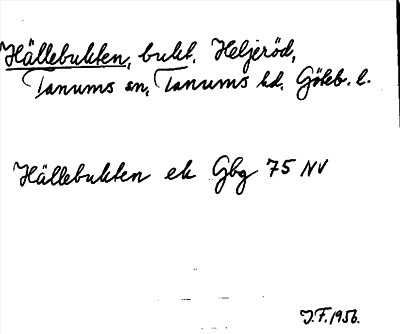 Hällebukten, bukt. Heljeröd,
Tanums sn, Tanums hd. Göteb. l.
Hällebukten ek Gbg 75 NV
J.F. 1956.